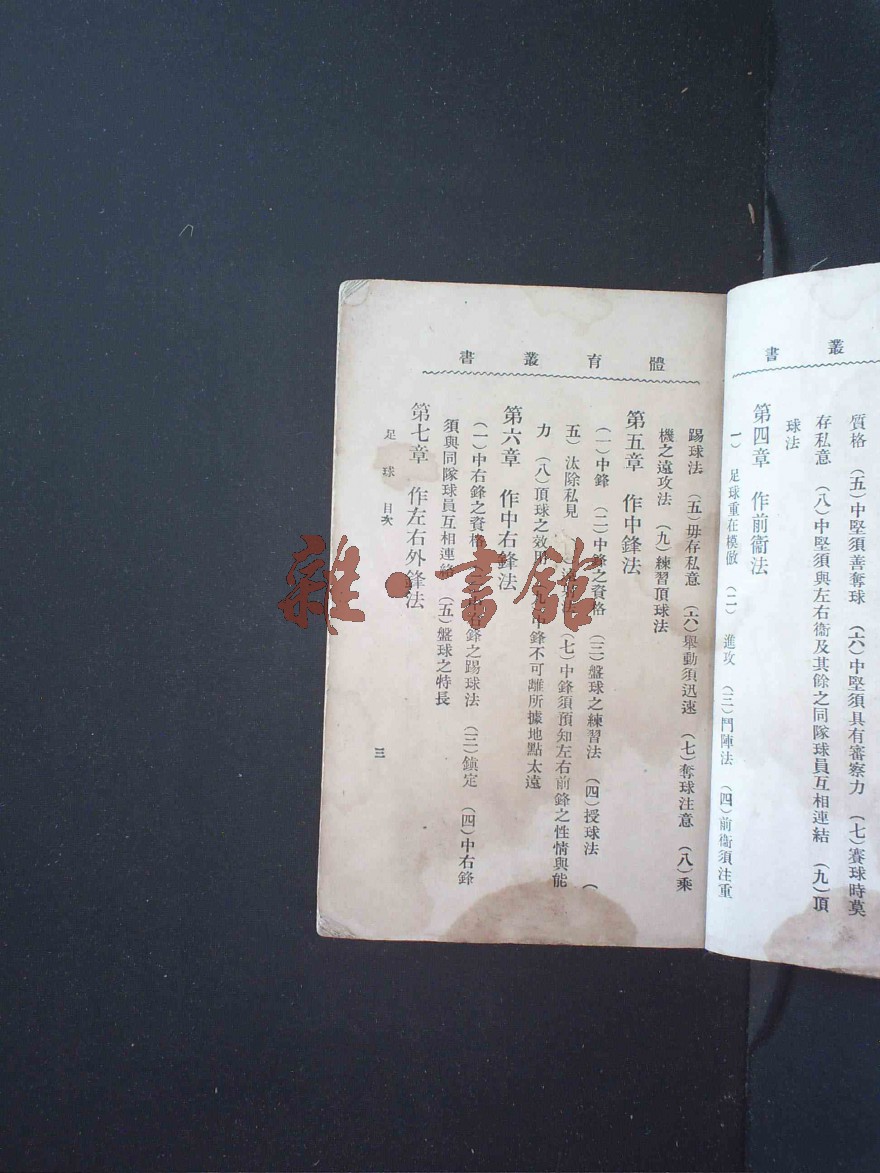 叢書
質格 (五)中堅須善奪球 (六)中堅須具有審察力 (七)賽球時莫
存私意 (八)中堅須與左右衞及其餘之同隊球員互相連結 (九)頂
球法
第四章 作前衞法
一) 足球重在模倣 (二) 進攻 (三)鬥陣法 (四)前衞須注重
體育叢書
踢球法 (五)毋存私意 (六)舉動須迅速 (七)奪球注意 (八)乘
機之遠攻法 (九)練習頂球法
第五章 作中鋒法
(一)中鋒 (二)中鋒之資格 (三)盤球之練習法 (四)授球法 (
五)汰除私見 (七)中鋒須預知左右前鋒之性情與能
力 (八)頂球之效用 中鋒不可離所據地點太遠
第六章 作中右鋒法
(一)中右鋒之資格 右鋒之踢球法 (三)鎮定 (四)中右鋒
須與同隊球員互相連絡 (五)盤球之特長
第七章 作左右外鋒法
足球 目次
三
雜·書館